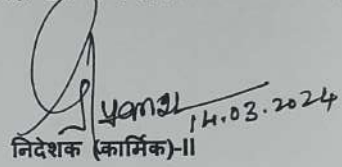 14.03.2024
निदेशक (कार्मिक)-II